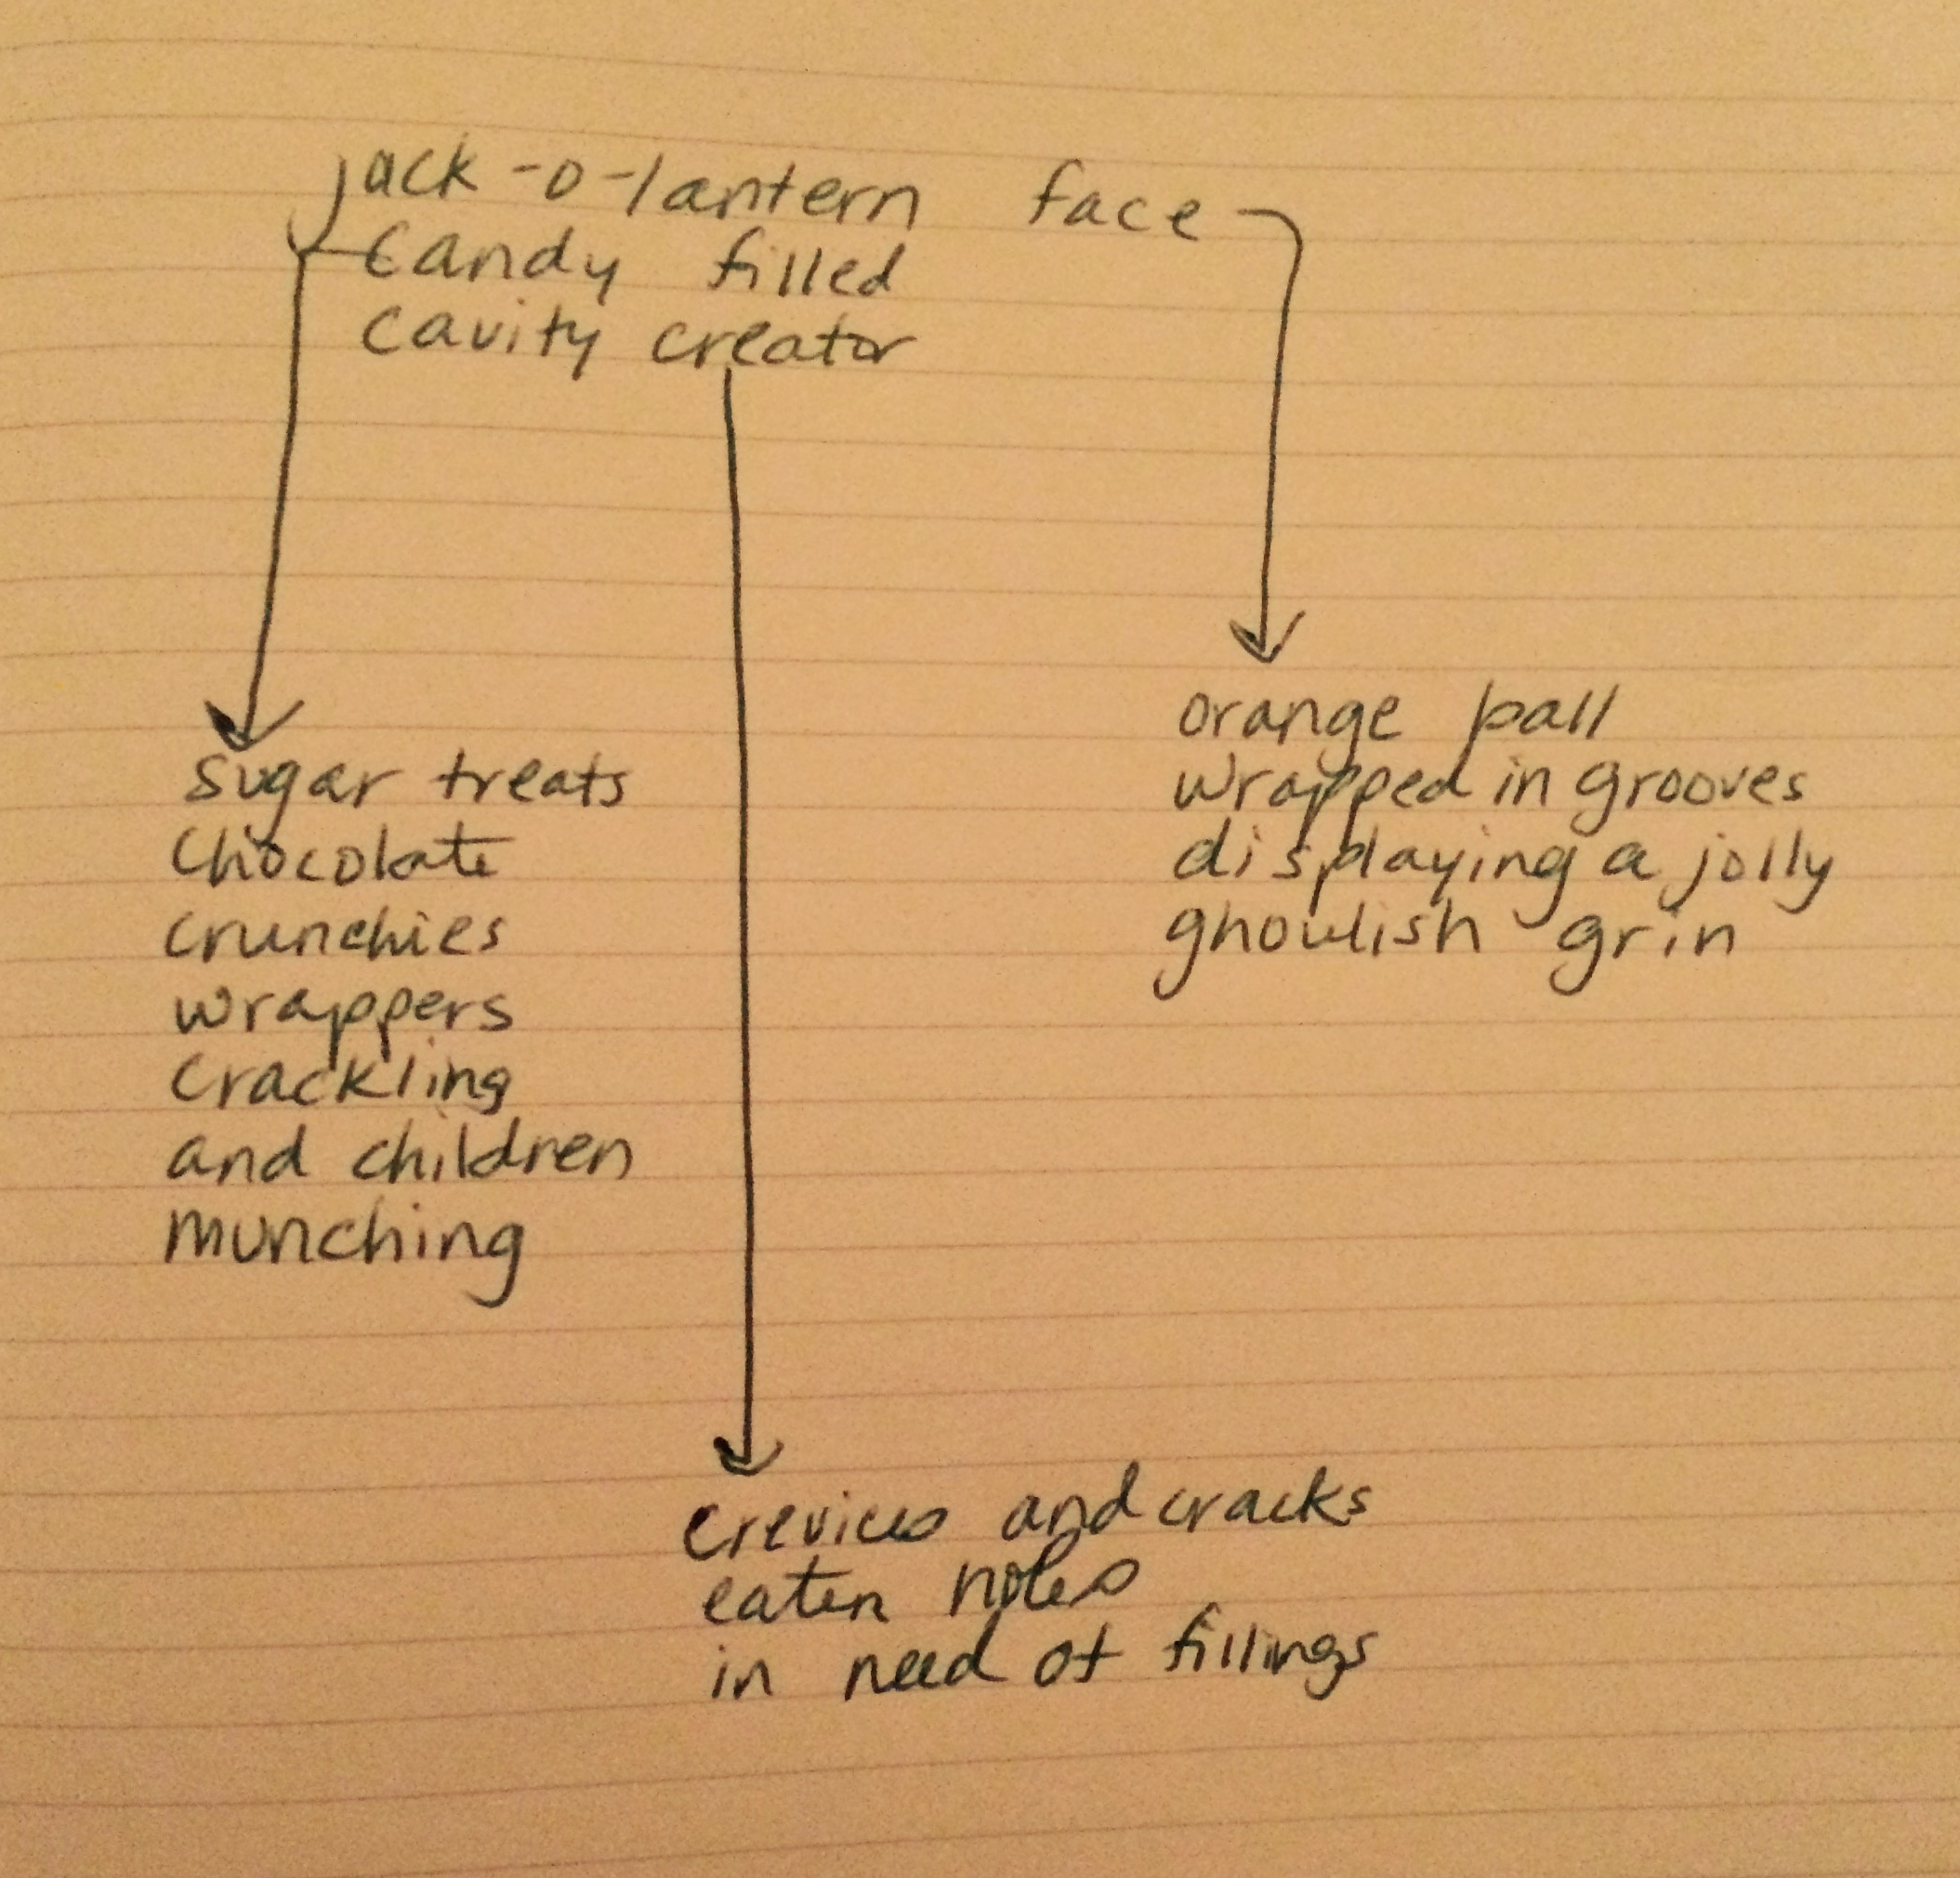 jack-o-lantern face
Candy filled
cavity creator
sugar treats
Chocolate
crunchies
wrappers
Crackling
and children
munching
orange ball
wrapped in grooves
displaying a jolly
ghoulish grin
crevices and cracks
eaten holes
in need of fillings